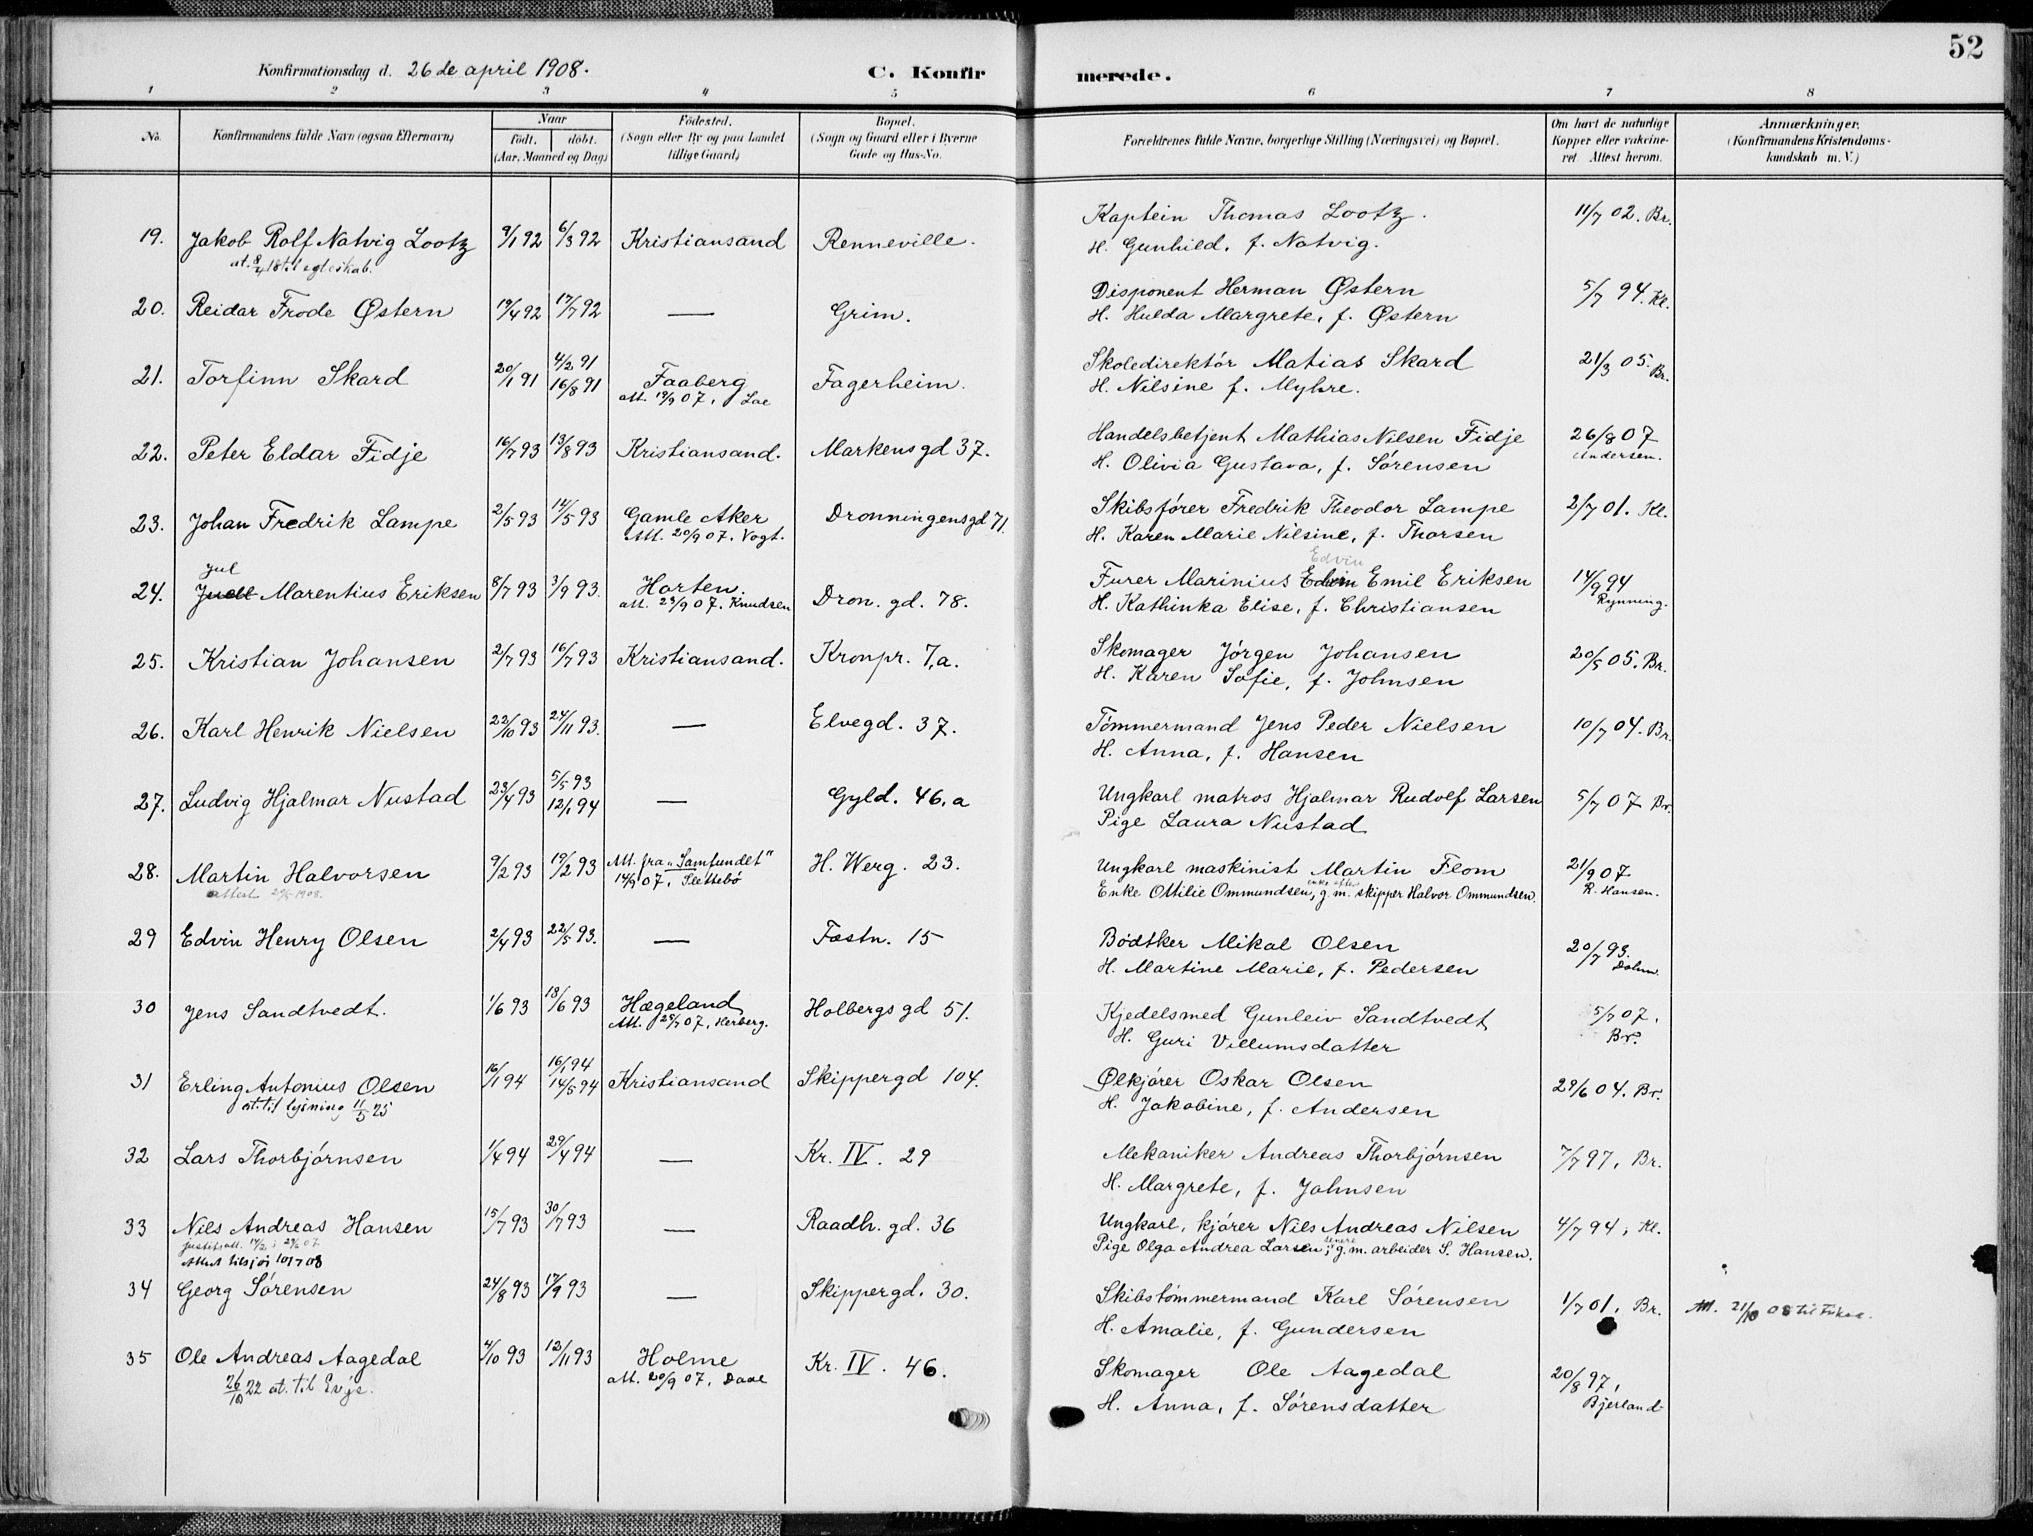 52
Konfirmationsdag d. 26de april 1908.
C. Konfirmerede.
1 2 3 4 5 6 7 8
No. Konfirmandens fulde Navn (ogsaa Efternavn) Naar født. døbt. (Aar, Maaned og Dag) Fødested. (Sogn eller By og paa Landet tillige Gaard) Bopæl. (Sogn og Gaard eller i Byerne Gade og Hus-No. Forældrenes fulde Navne, borgerlige Stilling (Næringsvei) og Bopæl. Om havt de naturlige Kopper eller vakcineret. Attest herom. Anmærkninger. (Konfirmandens Kristendomskundskab m. V.)
19. Jakob Rolf Natvig Lootz 9/1 92 6/3 92 Kristiansand Renneville. Kaptein Thomas Lootz. 11/7 02. Br.
at. 8/4 18 til egteskab. H. Gunhild, f. Natvig.
20. Reidar Frode Østern 19/4 92 17/7 92 — Grim. Disponent Herman Østern 5/7 94. Kl.
H. Hulda Margrete, f. Østern
21. Torfinn Skard 20/1 91 4/2 91 16/8 91 Faaberg Fagerheim. Skoledirektór Matias Skard 21/3 05. Br.
Att. 19/9 07, Loe H. Nilsine f. Myhre.
22. Peter Eldar Fidje 16/7 93 13/8 93 Kristiansand. Markensgd 37. Handelsbetjent Mathias Nilsen Fidje 26/8 07
H. Olivia Gustava, f. Sørensen Andersen.
23. Johan Fredrik Lampe 2/5 93 14/5 93 Gamle Aker Dronningensgd 71. Skibsfører Fredrik Theodor Lampe 2/7 01. Kl.
Att. 20/9 07. Vogt. H. Karen Marie Nilsine, f. Thorsen
Jul Edvin
24. Juell Marentius Eriksen 8/7 93 3/9 93. Horten. Dron. gd. 78. Furer Marinius Edvin Emil Eriksen 14/9 94
att. 23/9 07. Knudsen H. Kathinka Elise, f. Christiansen Rynning.
25. Kristian Johansen 2/7 93 16/7 93 Kristiansand. Kronpr. 7,a. Skomager Jørgen Johansen 20/5 05. Br.
H. Karen Sofie, f. Johnsen
26. Karl Henrik Nielsen 22/10 93 24/11 93. — Elvegd. 37. Tømmermand Jens Peder Nielsen 10/7 04. Br.
H. Anna, f. Hansen
27. Ludvig Hjalmar Nustad 23/4 93 5/5 93 12/1 94 — Gyld. 46,a Ungkarl matros Hjalmar Rudolf Larsen 5/7 07 Br.
Pige Laura Nustad
28. Martin Halvorsen 9/2 93 19/2 93 Att. fra „Samfundet" H. Werg. 23. Ungkarl maskinist Martin Flom 21/9 07
attest 29/5 1908. 14/9 07, Slettebø Enke Ottilie Ommundsen, g. m. enke efter skipper Halvor Ommundsen. R. Hansen.
29 Edvin Henry Olsen 2/4 93 22/5 93. — Fæstn. 15 Bødtker Mikal Olsen 20/7 93.
H. Martine Marie, f. Pedersen Dohm.
30 Jens Sandtvedt. 1/6 93 18/6 93 Hægeland Holbergsgd 51. Kjedelsmed Gunleiv Sandtvedt 5/7 07.
Att. 29/7 07, Herberg. H. Guri Villumsdatter Br.
31 Erling Antonius Olsen 16/1 94 16/1 94 14/5 94 Kristiansand Skippergd 104. Ølkjører Oskar Olsen 29/6 04. Br.
at. til lysning 11/5 25 H. Jakobine, f. Andersen
32 Lars Thorbjørnsen 1/4 94 29/4 94 — Kr. IV. 29 Mekaniker Andreas Thorbjørnsen 7/7 97, Br.
H. Margrete, f. Johnsen
33 Nils Andreas Hansen 15/7 93 30/7 93 — Raadh. gd. 36 Ungkarl, kjører Nils Andreas Nilsen 4/7 94, Kl.
Pige Olga Andrea Larsen; senere g. m. arbeider S. Hansen.
Attest tilsjøs 10/7 08
34 Georg Sørensen 24/8 93 17/9 93 — Skippergd. 30. Skibstømmermand Karl Sørensen 1/7 01. Br. Att. 21/10 08 til
H. Amalie, f. Gundersen
35 Ole Andreas Aagedal 4/10 93 12/11 93 Holme Kr. IV. 46. Skomager Ole Aagedal 20/8 97,
26/10 22 at. til Evje. att. 20/9 07, Daae H. Anna, f. Sørensdatter Bjerland